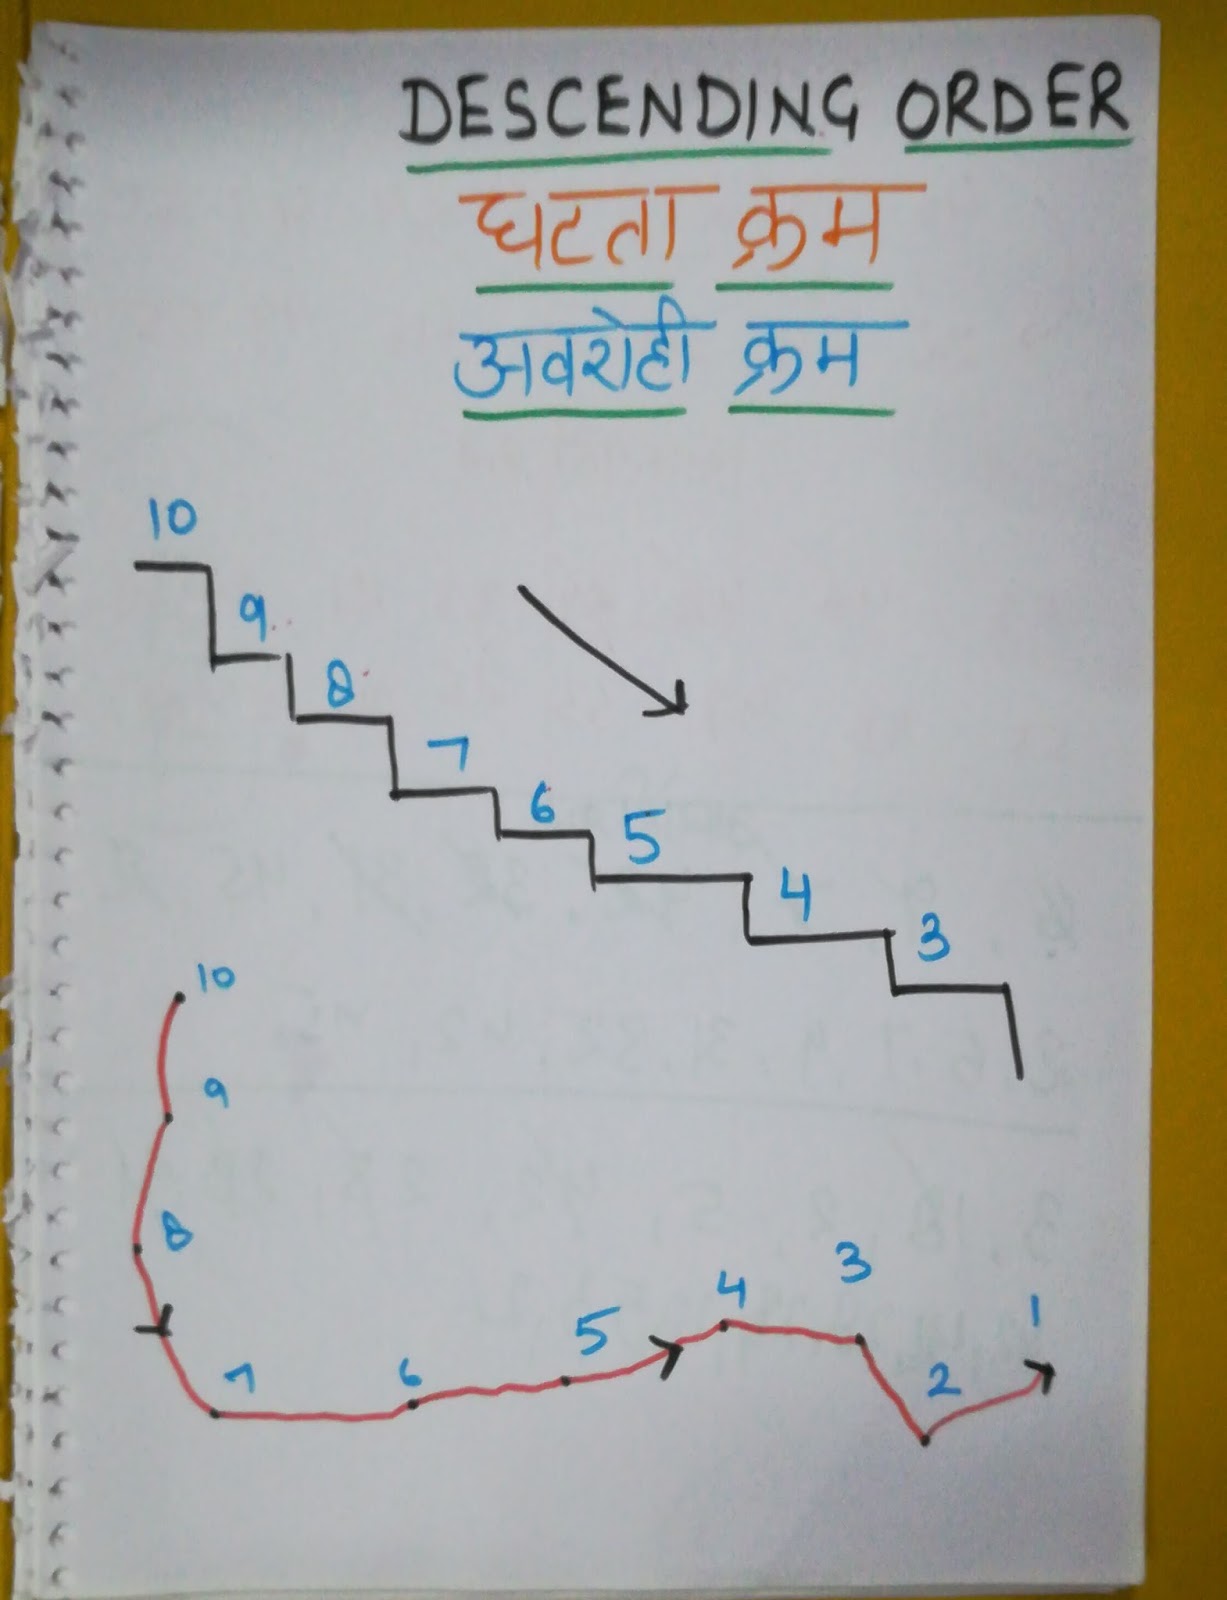 DESCENDING ORDER
घटता क्रम
अवरोही क्रम
10
9
8
7
6
5
4
3
10
9
8
7
6
5
4
3
2
1